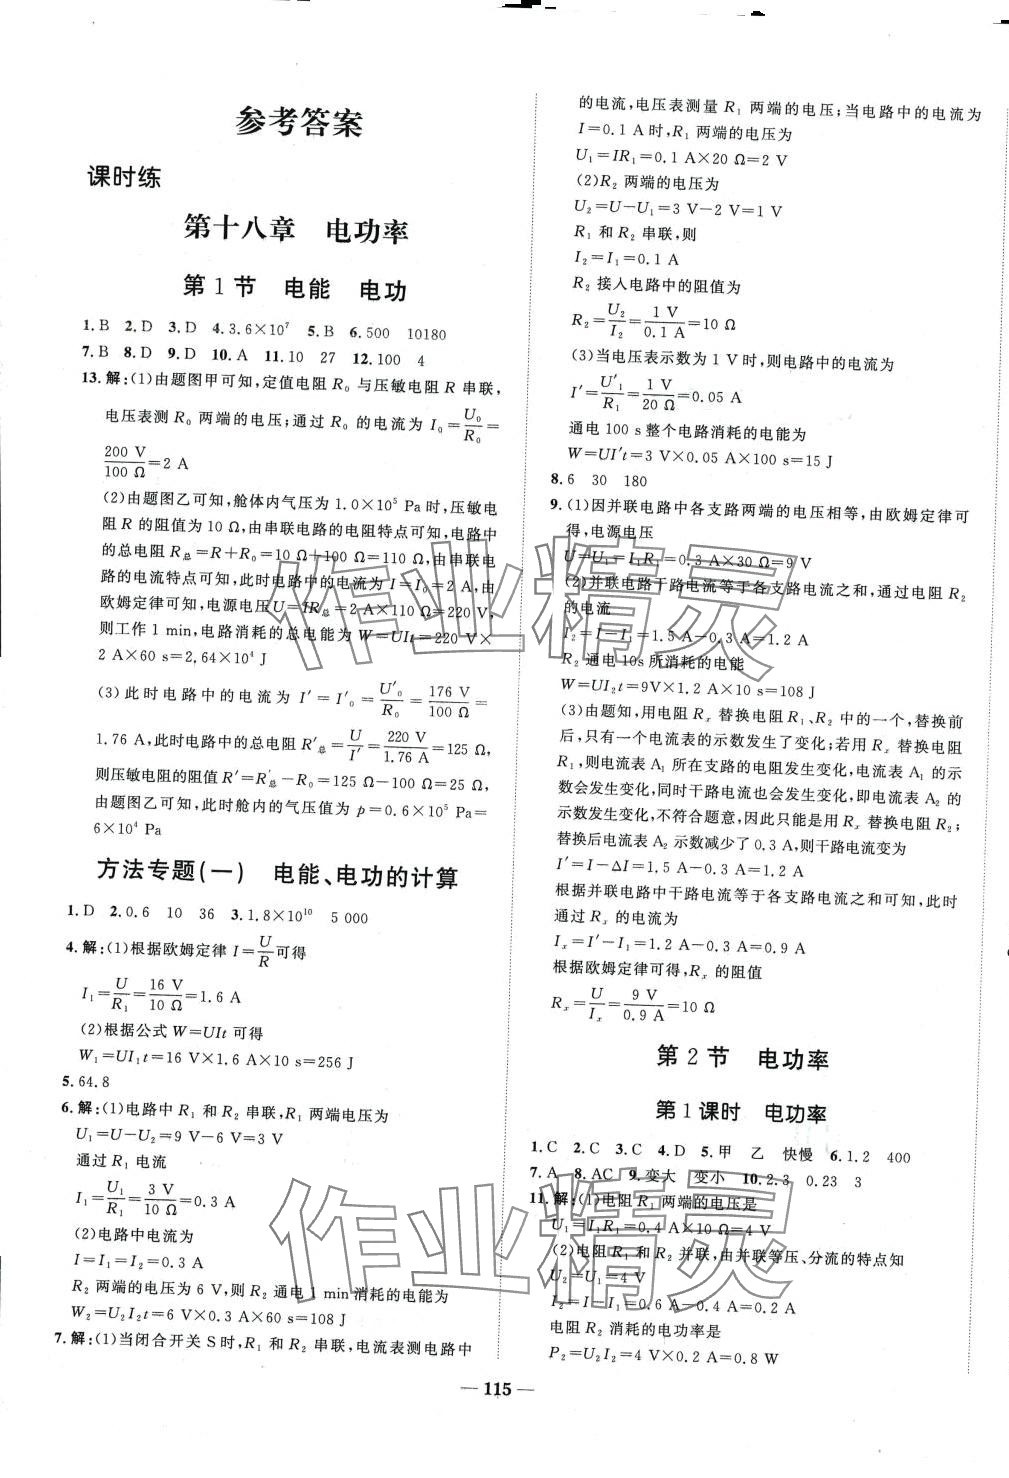 参考答案
课时练
第十八章 电功率
第1节 电能 电功
1.B 2.D 3.D 4.3.6×10⁷ 5.B 6.500 10180
7.B 8.D 9.D 10.A 11.10 27 12.100 4
13.解:(1)由题图甲可知,定值电阻R₀与压敏电阻R串联,
电压表测R₀两端的电压;通过R₀的电流为I₀=U₀/R₀=
200 V/100 Ω=2 A
(2)由题图乙可知,舱体内气压为1.0×10⁵ Pa时,压敏电
阻R的阻值为10 Ω,由串联电路的电阻特点可知,电路中
的总电阻R总=R+R₀=10 Ω+100 Ω=110 Ω,由串联电
路的电流特点可知,此时电路中的电流为I=I₀=2 A,由
欧姆定律可知,电源电压U=IR总=2 A×110 Ω=220 V,
则工作1 min,电路消耗的总电能为W=UIt=220 V×
2 A×60 s=2.64×10⁴ J
(3)此时电路中的电流为I′=I′₀=U′₀/R₀=176 V/100 Ω=
1.76 A,此时电路中的总电阻R′总=U/I′=220 V/1.76 A=125 Ω,
则压敏电阻的阻值R′=R′总-R₀=125 Ω-100 Ω=25 Ω,
由题图乙可知,此时舱内的气压值为p=0.6×10⁵ Pa=
6×10⁴ Pa
方法专题(一) 电能、电功的计算
1.D 2.0.6 10 36 3.1.8×10¹⁰ 5 000
4.解:(1)根据欧姆定律I=U/R可得
I₁=U/R₁=16 V/10 Ω=1.6 A
(2)根据公式W=UIt可得
W₁=UI₁t=16 V×1.6 A×10 s=256 J
5.64.8
6.解:(1)电路中R₁和R₂串联,R₁两端电压为
U₁=U-U₂=9 V-6 V=3 V
通过R₁电流
I₁=U₁/R₁=3 V/10 Ω=0.3 A
(2)电路中电流为
I=I₁=I₂=0.3 A
R₂两端的电压为6 V,则R₂通电1 min消耗的电能为
W₂=U₂I₂t=6 V×0.3 A×60 s=108 J
7.解:(1)当闭合开关S时,R₁和R₂串联,电流表测电路中
的电流,电压表测量R₁两端的电压;当电路中的电流为
I=0.1 A时,R₁两端的电压为
U₁=IR₁=0.1 A×20 Ω=2 V
(2)R₂两端的电压为
U₂=U-U₁=3 V-2 V=1 V
R₁和R₂串联,则
I₂=I₁=0.1 A
R₂接入电路中的阻值为
R₂=U₂/I₂=1 V/0.1 A=10 Ω
(3)当电压表示数为1 V时,则电路中的电流为
I′=U′₁/R₁=1 V/20 Ω=0.05 A
通电100 s整个电路消耗的电能为
W=UI′t=3 V×0.05 A×100 s=15 J
8.6 30 180
9.(1)因并联电路中各支路两端的电压相等,由欧姆定律可
得,电源电压
U=U₁=I₁R₁=0.3 A×30 Ω=9 V
(2)并联电路干路电流等于各支路电流之和,通过电阻R₂
的电流
I₂=I-I₁=1.5 A-0.3 A=1.2 A
R₂通电10s所消耗的电能
W=UI₂t=9V×1.2 A×10 s=108 J
(3)由题知,用电阻Rₓ替换电阻R₁、R₂中的一个,替换前
后,只有一个电流表的示数发生了变化;若用Rₓ替换电阻
R₁,则电流表A₁所在支路的电阻发生变化,电流表A₁的示
数会发生变化,同时干路电流也会发生变化,即电流表A₂的
示数发生变化,不符合题意,因此只能是用Rₓ替换电阻R₂;
替换后电流表A₂示数减少了0.3 A,则干路电流变为
I′=I-ΔI=1.5 A-0.3 A=1.2 A
根据并联电路中干路电流等于各支路电流之和可知,此时
通过Rₓ的电流为
Iₓ=I′-I₁=1.2 A-0.3 A=0.9 A
根据欧姆定律可得,Rₓ的阻值
Rₓ=U/Iₓ=9 V/0.9 A=10 Ω
第2节 电功率
第1课时 电功率
1.C 2.C 3.C 4.D 5.甲 乙 快慢 6.1.2 400
7.A 8.AC 9.变大 变小 10.2.3 0.23 3
11.解:(1)电阻R₁两端的电压是
U₁=I₁R₁=0.4 A×10 Ω=4 V
(2)电阻R₁和R₂并联,由并联等压、分流的特点知
U₂=U₁=4 V
I₂=I-I₁=0.6 A-0.4 A=0.2 A
电阻R₂消耗的电功率是
P₂=U₂I₂=4 V×0.2 A=0.8 W
— 115 —
作业精灵
作业精灵